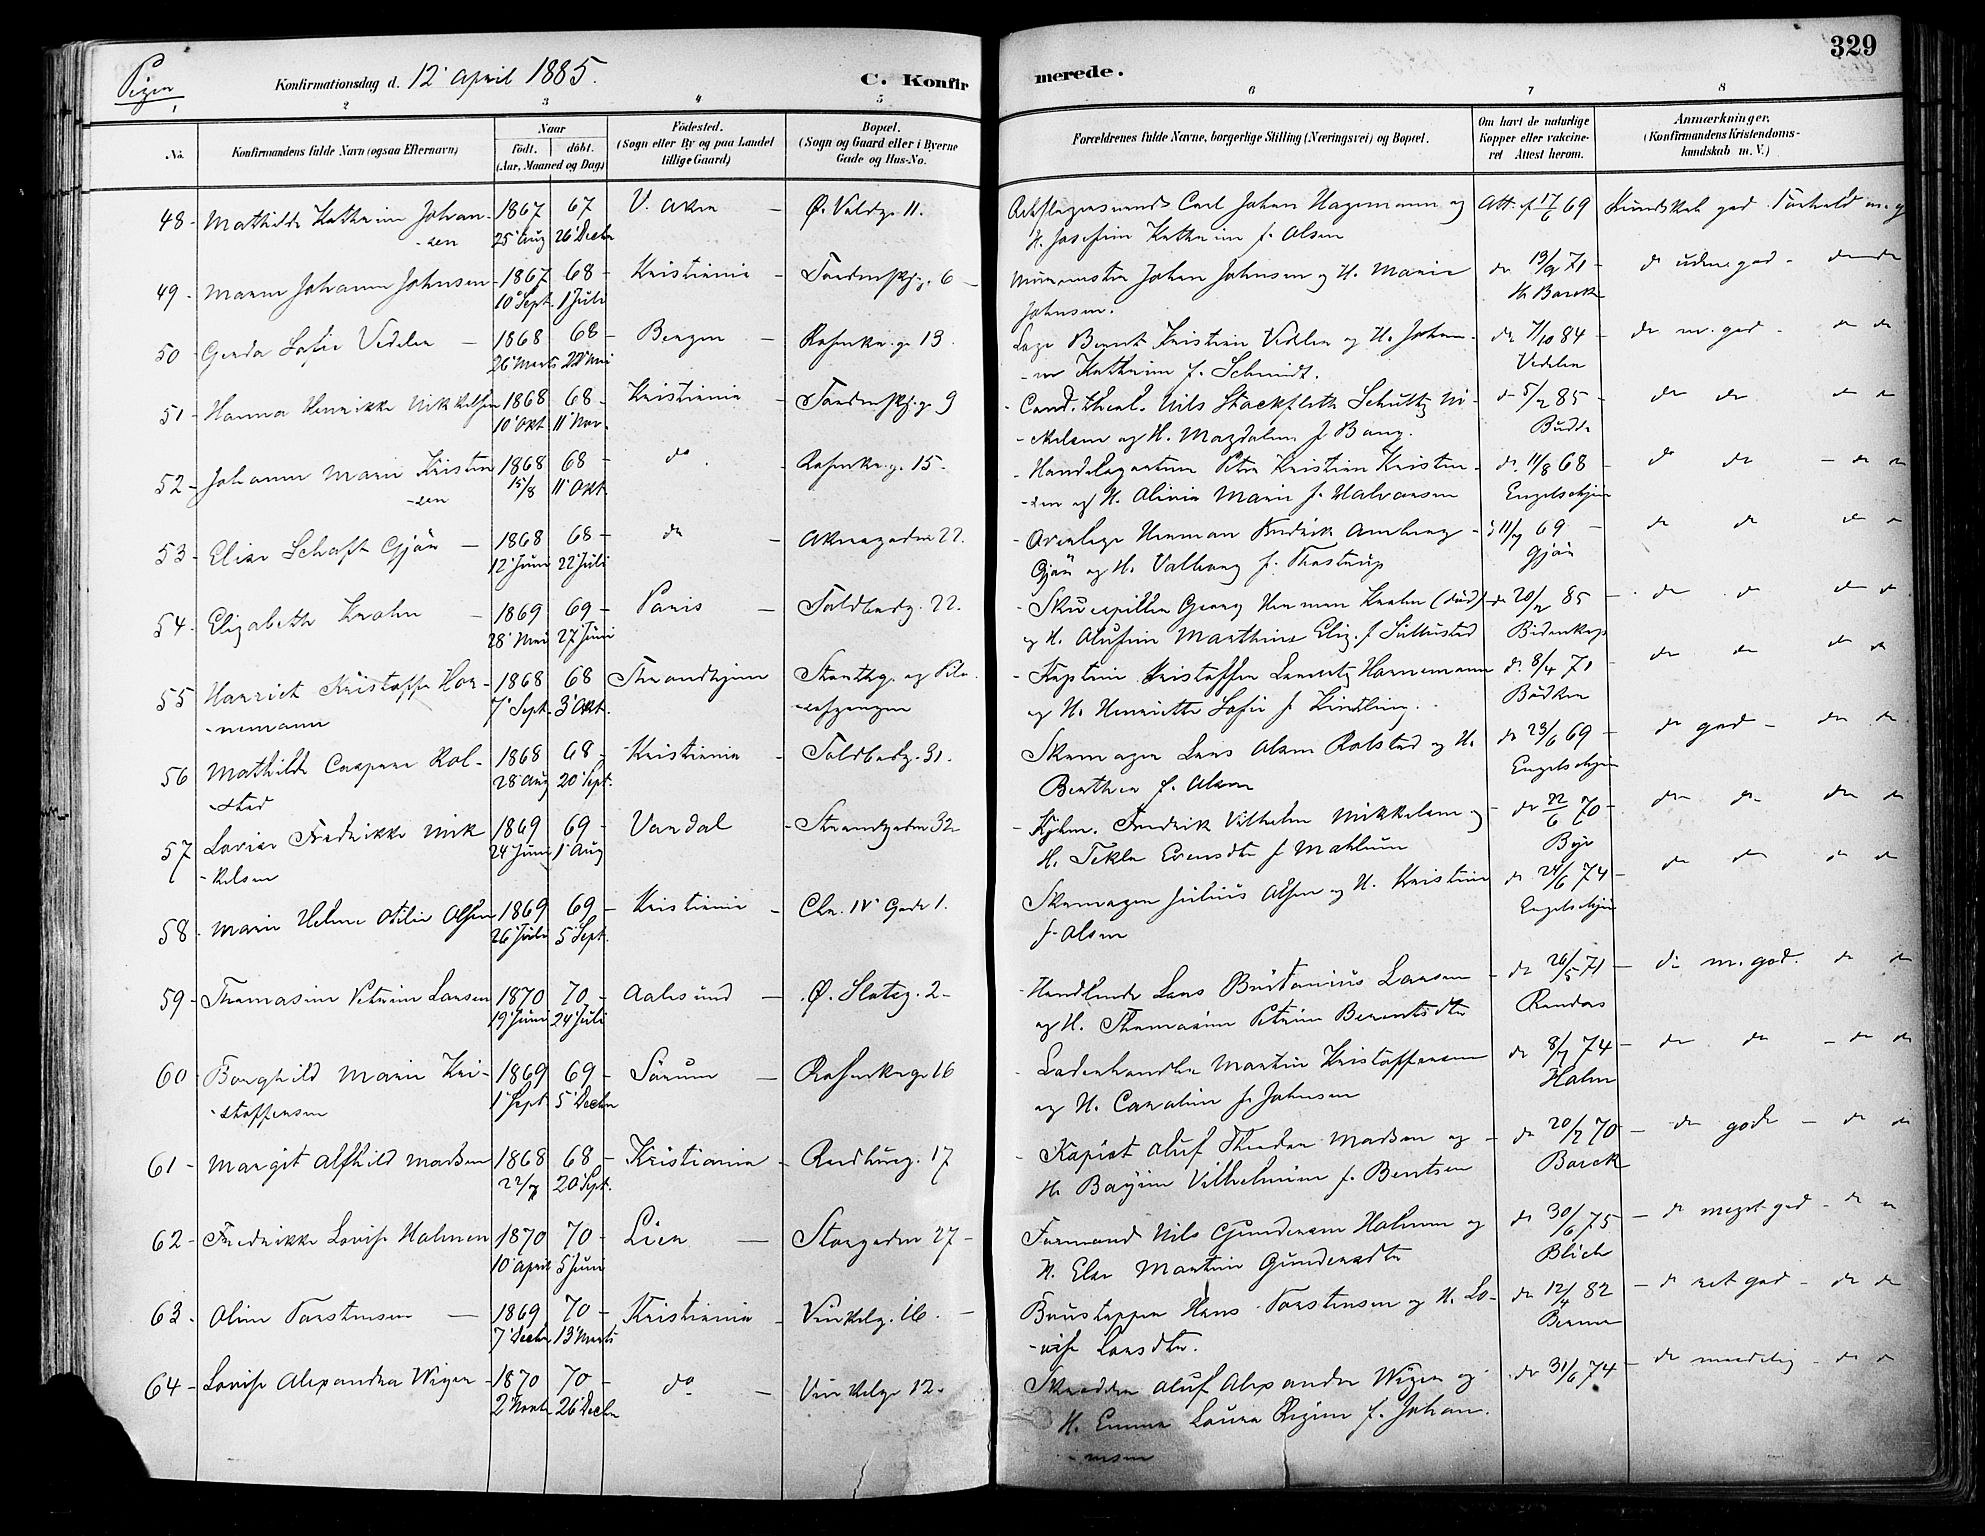 329
Piger
Konfirmationsdag d. 12' April 1885.
C. Konfirmerede.
1 2 3 4 5 6 7 8
No.
Konfirmandens fulde Navn (ogsaa Efternavn)
Naar
födt. döbt.
(Aar, Maaned og Dag)
Födested.
(Sogn eller By og paa Landet
tillige Gaard)
Bopæl.
(Sogn og Gaard eller i Byerne
Gade og Hus-No.
Forældrenes fulde Navne, borgerlige Stilling (Næringsvei) og Bopæl.
Om havt de naturlige
Kopper eller vakcine-
ret Attest herom.
Anmærkninger.
(Konfirmandens Kristendoms-
kundskab m. V.)
48 - Mathilde Kathrine Johan- 1867 67 V. Aker - Ø. Voldg. 11. Carl Johan Hagemann og Att. f 17/6 69 Kundskab god. Forhold m. g
-sen 25' Aug 26' Decbr H. Josefine Kathrine f. Olsen
49 - Marie Johanne Johnsen - 1867 68 - Kristiania - Tordenskj.g. 6 - Murmester Johan Johnsen og H. Marie do 13/9 71 - do
10' Sept. 1 Juli Johnsen. Barck
50 - Gerda Sofie Vedeler - 1868 68 - Bergen - Rosenkr.g. 13. Læge Bernt Kristian Vedeler og H. Johan- do 7/10 84 - do m. god - do do
26' Marts Mai -ne Kathrine f. Schmidt. Vedeler
51 - Hanna Henrikke Nikkelsen 1868 68 - Kristiania - Tordenskj.g. 9 Cand. theol. Nils Stockfleth Schultz Ni- do 5/2 85 - do do do do
10' Okt 11' Nov. -kelsen og H. Magdalene f. Bang. Budde
52 - Johanne Marie Kristen 1868 68 - do - Rosenkr.g. 15. - Handelsgartner Peter Kristian Kristen- do 11/8 68 - do do - do do
-sen 15/8 11' Okt. -sen og H. Olivia Marie f. Halvorsen Engelschjøn
53 - Elise Schaft Gjör - 1868 68 - do - Akersgaden 22. Overlæge Herman Fredrik Amberg 11/9 69 - do do do do
12' Juni 22 Juli Gjör og H. Valborg f. Thostrup Gjör
54 - Elizabeth Krohn - 1869 69 - Paris - Toldbodg. 22. - Skuespiller Georg Herman Krohn (död) - do 20/2 85 - do do do do
28' Mai 27' Juni og H. Olufine Marthine Eliz. f. Bidenkap
55 Henriet Kristoffe Hor- 1868 68 Throndhjem - Kaptein Kristoffer Lorentz Hornemann do 8/4 71 - do do do do
-nemann 7' Sept. 3' Okt. og H. Henriette Sofie f. Kindling.
56 Mathilde Caspara Rol- 1868 68 - Kristiania - Toldbodg. 31. Skomager Lars Olsen Rolstad og H. do 23/6 69 - do god - do do
-stad 28' Aug 20' Sept. Berthea f. Olsen Engelschjøn
57 - Lovise Fredrikke Mik 1869 69 - Vardal - Strandgaden 32 - Kjbm. Fredrik Vilhelm Mikkelsen og - do 22/6 70 - do do do do
-kelsen 24' Juni 1' Aug H. Tekla Evensdtr f. Mæhlum
58 - Marie Helene Otilie Olsen 1869 69 - Kristiania - Chr. IV' Gade 1. Skomager Julius Olsen og H. Kristine do 24/6 74 - do do do do
26' Juli 5' Sept. f. Olsen Engelschjøn
59 - Thomasine Petrine Larsen 1870 70 - Aalesund - Ø. Slotsg. 2 - - Handlende Lars Larsen - do 26/5 71 - do m. god. do do
19' Juni 24' Juli og H. Thomasine Petrine Berentsdtr
60 - Borghild Marie Kri- 1869 69 - Sörum - Rosenkr.g. 16 - Ladenhandler Martin Kristoffersen do 8/7 74 - do do - do do
-stoffersen 1' Sept 5' Decbr og H. Caroline f. Johnsen Holm
61 - Margit Alfhild Madsen 1868 68 - Kristiania - Raadhusg. 17 - Kopist Oluf Theodor Madsen og - do 20/2 70 - do gode - do do
22/7 20' Sept. H. Vilhelmine f. Bentsen Barck
62 - Fredrikke Lovise Holmen 1870 70 - Lier - Storgaden 27 - Formand Nils Gundersen Holmen og do 30/6 75 - do meget god - do
10' April 5' Juni H. Else Martine Gundersdtr Blich
63 - Oline Torstensen - 1869 70 - Kristiania - Vinkelg. 16. - Brustapper Hans Torstensen og H. Lo- do 12/4 82 - do ret god - do do
7' Decbr 13' Marts -vise Larsdtr.
64 - Lovise Alexandra Wiger - 1870 70 - do - Vinkelg. 12. Skrædder Oluf Alexander Wiger og do 31/6 74 - do maadelig - do
26' Decbr H. Emma Laura Regine f. Johan-
-nsen